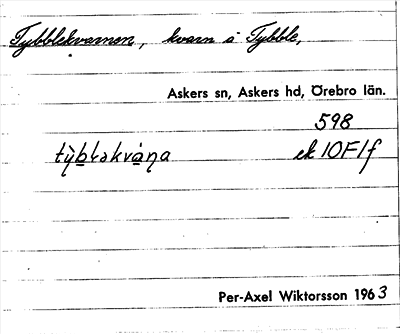 Tybblekvarnen, kvarn å Tybble,
Askers sn, Askers hd, Örebro län.
598
ek 10F1f
Per-Axel Wiktorsson 1963